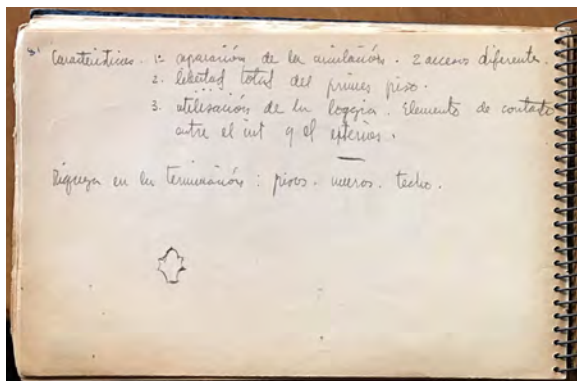 Caracteristicas. 1: separación de la circulación. 2 accesos diferentes.
2. libertad total del primer piso.
3. utilisación de la loggia. Elemento de contacto
entre el int y el externos.
Riqueza en la terminación: pisos. muros. techo.